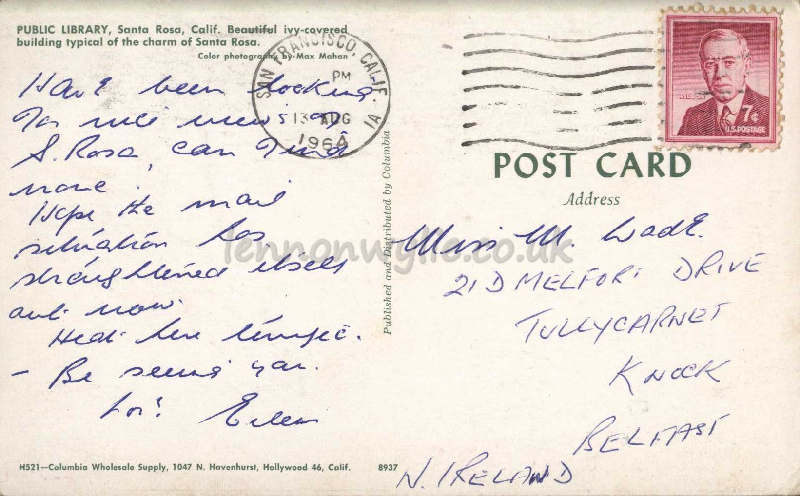 PUBLIC LIBRARY, Santa Rosa, Calif. Beautiful ivy-covered
building typical of the charm of Santa Rosa.
Color photography by Max Mahan
SAN FRANCISCO, CALIF.
PM
13 AUG
1960
1A
7¢
U.S. POSTAGE
Have been looking
for nice views of
S. Rosa, can find
none.
Hope the mail
situation has
straightened itself
out now.
Be seeing you.
Eileen
Published and Distributed by Columbia
POST CARD
Address
Miss M. Wade.
21D MELFORT DRIVE
TULLYCARNET
KNOCK
BELFAST
N. IRELAND
lennonwylie.co.uk
H521—Columbia Wholesale Supply, 1047 N. Havenhurst, Hollywood 46, Calif.
8937